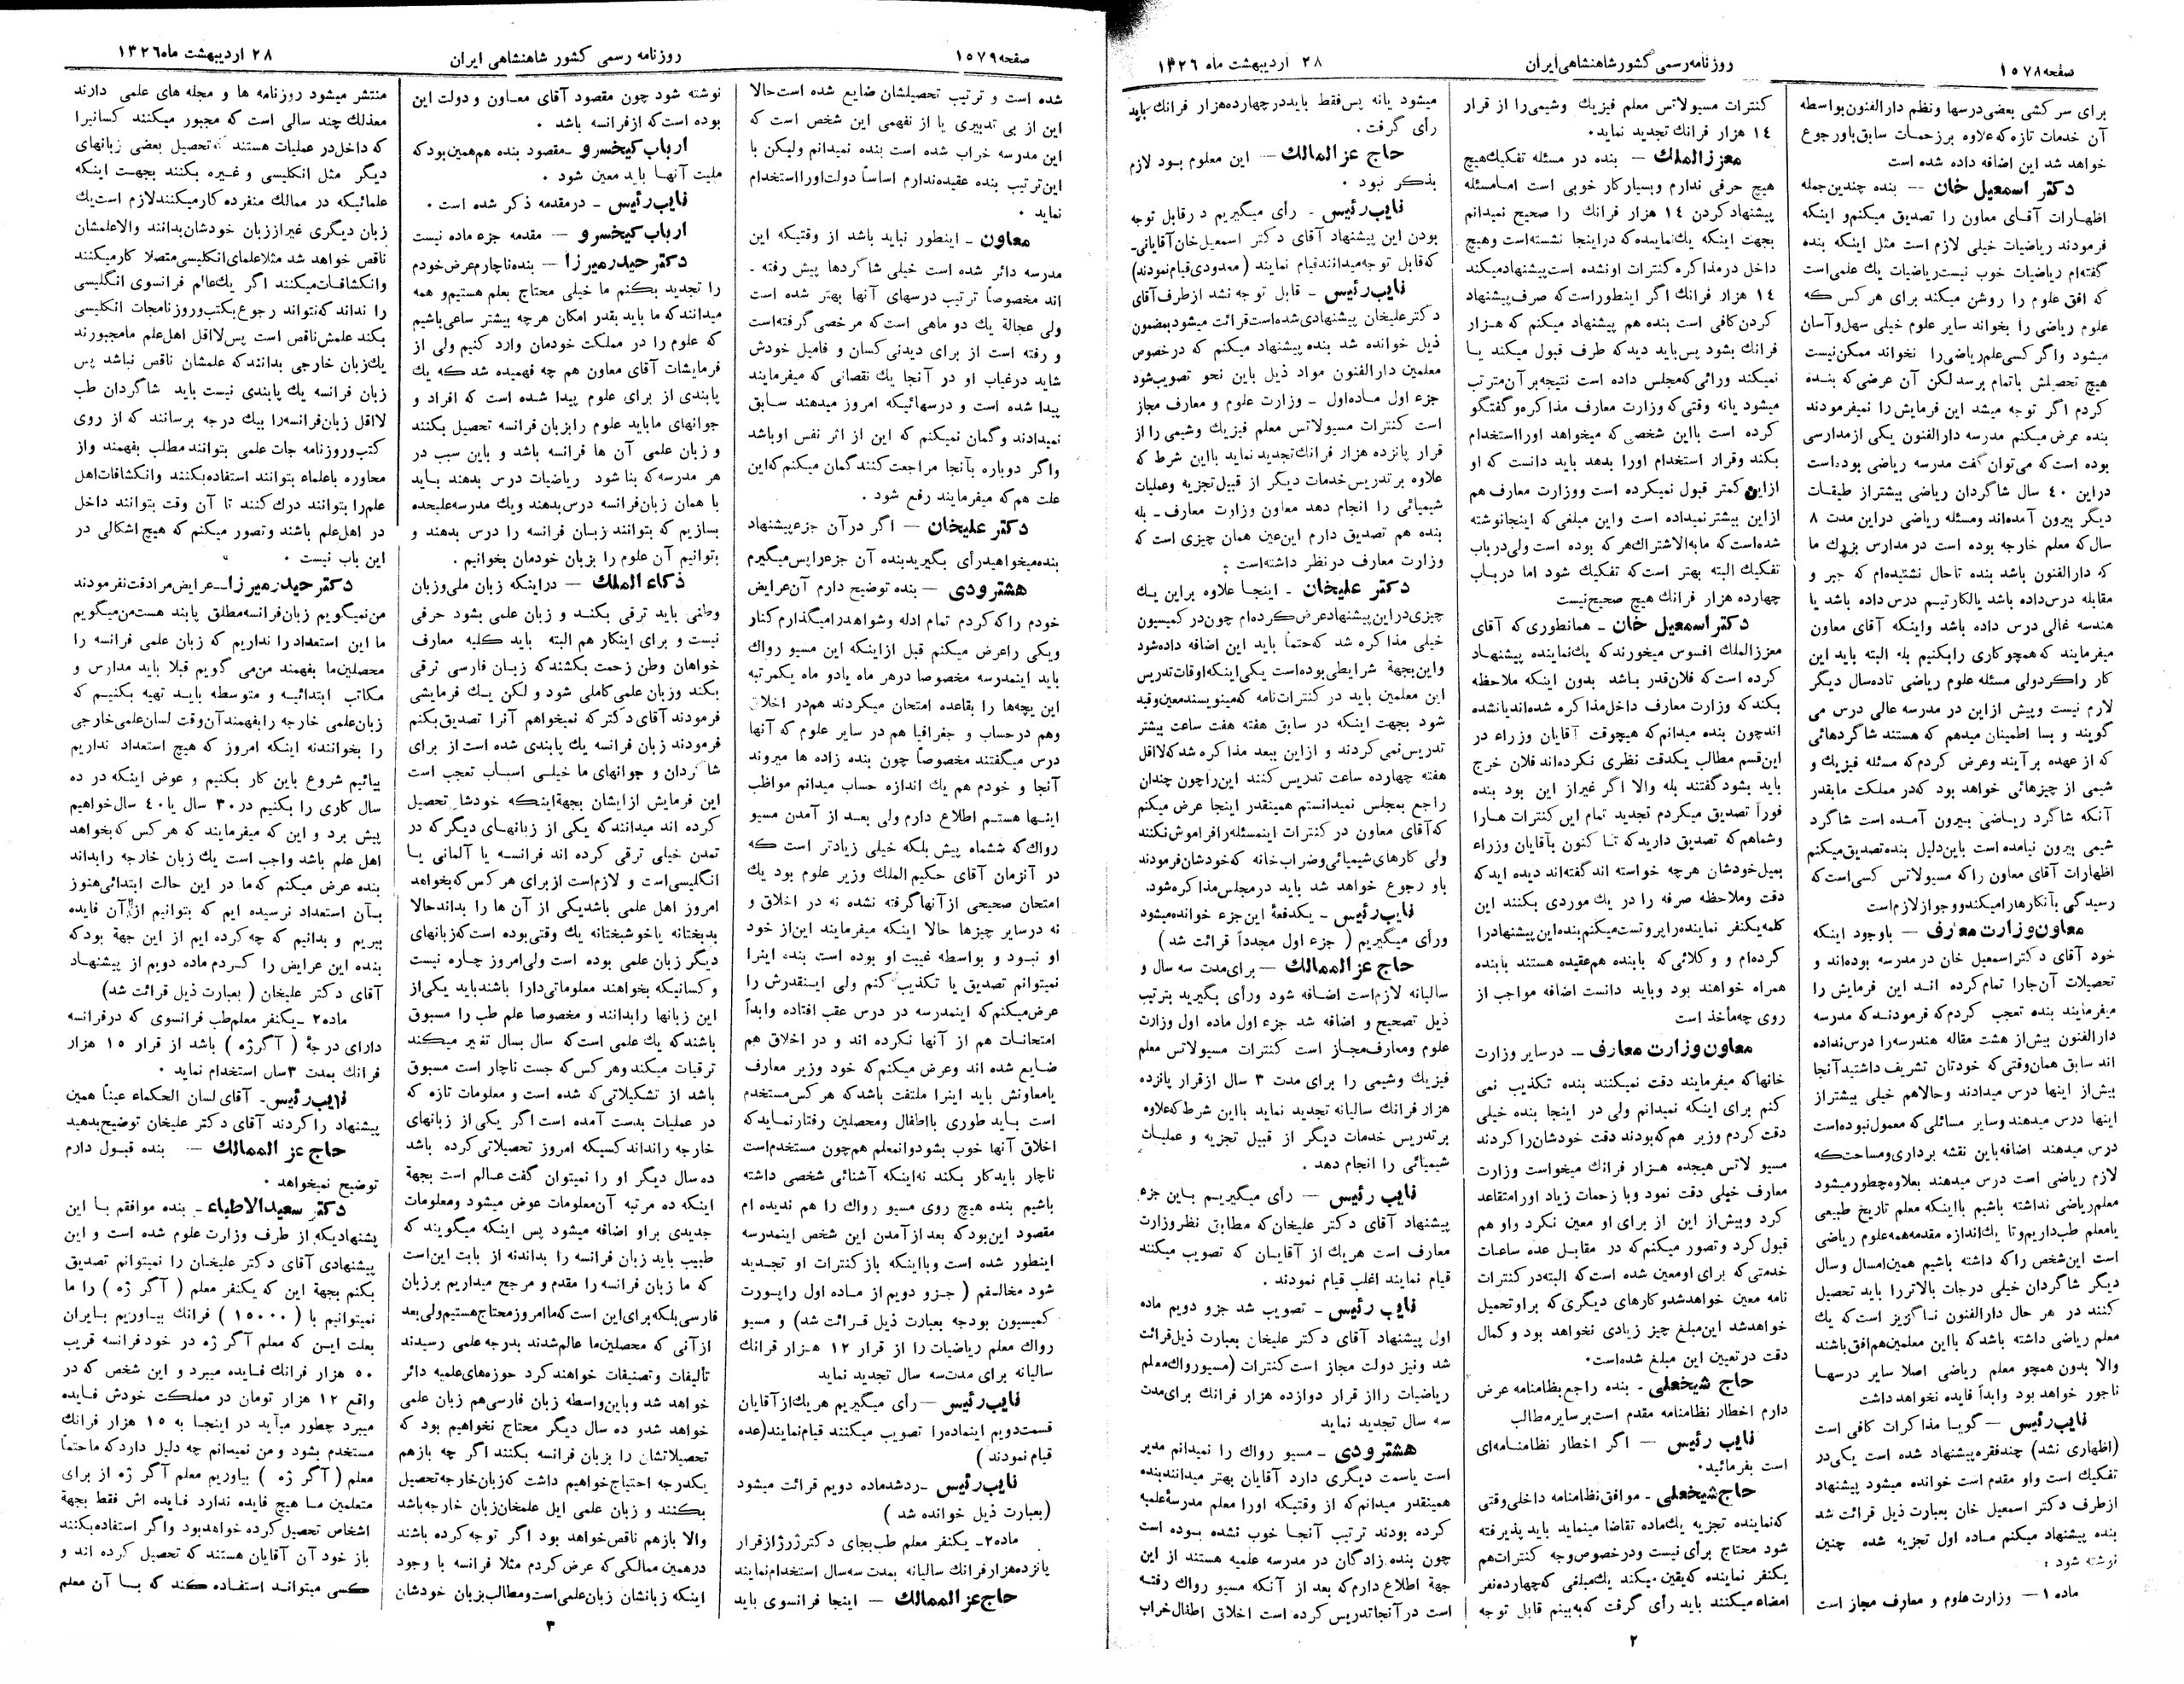 صفحه ۱۵۷۸
روزنامه رسمی کشور شاهنشاهی ایران
۲۸ اردیبهشت ماه ۱۳۲۶
برای سر کشی بعضی درسها و نظم دارالفنون بواسطه
آن خدمات تازه که علاوه بر زحمات سابق باو رجوع
خواهد شد این اضافه داده شده است
دکتر اسمعیل خان -- بنده چندین جمله
اظهارات آقای معاون را تصدیق میکنم و اینکه
فرمودند ریاضیات خیلی لازم است مثل اینکه بنده
گفته‌ام ریاضیات خوب نیست ریاضیات یك علمی است
که افق علوم را روشن میکند برای هر کس که
علوم ریاضی را بخواند سایر علوم خیلی سهل و آسان
میشود و اگر کسی علم ریاضی را نخواند ممکن نیست
هیچ تحصیلش باتمام برسد لکن آن عرضی که بنده
کردم اگر توجه میشد این فرمایش را نمیفرمودند
بنده عرض میکنم مدرسه دارالفنون یکی از مدارسی
بوده است که می‌توان گفت مدرسه ریاضی بوده است
در این ۴۰ سال شاگردان ریاضی بیشتر از طبقات
دیگر بیرون آمده‌اند و مسئله ریاضی در این مدت ۸
سال که معلم خارجه بوده است در مدارس بزرك ما
که دارالفنون باشد بنده تا حال نشنیده‌ام که جبر و
مقابله درس داده باشد یا لکارتیم درس داده باشد یا
هندسه عالی درس داده باشد و اینکه آقای معاون
میفرمایند که همچو کاری را بکنیم بله البته باید این
کار را کرد ولی مسئله علوم ریاضی تا ده سال دیگر
لازم نیست و پیش از این در مدرسه عالی درس می
گویند و بسا اطمینان میدهم که هستند شاگردهائی
که از عهده بر آیند و عرض کردم که مسئله فیزیك و
شیمی از چیزهائی خواهد بود که در مملکت ما بقدر
آنکه شاگرد ریاضی بیرون آمده است شاگرد
شیمی بیرون نیامده است باین دلیل بنده تصدیق میکنم
اظهارات آقای معاون را که مسیو لاتس کسی است که
رسیدگی بآنکارها میکند و وجوار لازم است
معاون وزارت معارف -- باوجود اینکه
خود آقای دکتر اسمعیل خان در مدرسه بوده‌اند و
تحصیلات آن جا را تمام کرده اند این فرمایش را
میفرمایند بنده تعجب کردم که فرمودند که مدرسه
دارالفنون بیش از هشت مقاله هندسه را درس نداده
اند سابق همان وقتی که خودتان تشریف داشتید آنجا
بیش از اینها درس میدادند و حالا هم خیلی بیشتر از
اینها درس میدهند و سایر مسائلی که معمول نبوده است
درس میدهند اضافه باین نقشه برداری و مساحت که
لازم ریاضی است درس میدهند بعلاوه چطور میشود
معلم ریاضی نداشته باشیم با اینکه معلم تاریخ طبیعی
یا معلم طب داریم و تا یك اندازه مقدمه همه علوم ریاضی
است این شخص را که داشته باشیم همین امسال و سال
دیگر شاگردان خیلی درجات بالاتر را باید تحصیل
کنند در هر حال دارالفنون ناگزیز است که یك
معلم ریاضی داشته باشد که با این معلمین هم افق باشند
والا بدون همچو معلم ریاضی اصلا سایر درسها
ناجور خواهد بود و ابداً فایده نخواهد داشت
نایب رئیس -- گویا مذاکرات کافی است
(اظهاری نشد) چند فقره پیشنهاد شده است یکی در
تفکیك است واو مقدم است خوانده میشود پیشنهاد
از طرف دکتر اسمعیل خان بعبارت ذیل قرائت شد
بنده پیشنهاد میکنم ماده اول تجزیه شده چنین
نوشته شود :
ماده ۱ -- وزارت علوم و معارف مجاز است
کنترات مسیو لاتس معلم فیزیك و شیمی را از قرار
۱۴ هزار فرانك تجدید نماید.
معزز الملك -- بنده در مسئله تفکیك هیچ
هیچ حرفی ندارم و بسیار کار خوبی است اما مسئله
پیشنهاد کردن ۱۴ هزار فرانك را صحیح نمیدانم
بجهت اینکه یك نماینده که در اینجا نشسته است و هیچ
داخل در مذاکره کنترات او نشده است پیشنهاد میکند
۱۴ هزار فرانك اگر اینطور است که صرف پیشنهاد
کردن کافی است بنده هم پیشنهاد میکنم که هزار
فرانك بشود پس باید دید که طرف قبول میکند یا
نمیکند و رائی که مجلس داده است نتیجه بر آن مترتب
میشود یانه وقتی که وزارت معارف مذاکره و گفتگو
کرده است با این شخصی که میخواهد او را استخدام
بکند و قرار استخدام او را بدهد باید دانست که او
از این کمتر قبول نمیکرده است و وزارت معارف هم
از این بیشتر نمیداده است و این مبلغی که اینجا نوشته
شده است که ما به الاشتراك هر که بوده است ولی در باب
تفکیك البته بهتر است که تفکیك شود اما در باب
چهارده هزار فرانك هیچ صحیح نیست
دکتر اسمعیل خان -- همانطوری که آقای
معزز الملك افسوس میخورند که یك نماینده پیشنهاد
کرده است که فلان قدر باشد بدون اینکه ملاحظه
بکند که وزارت معارف داخل مذاکره شده اند یا نشده
اند چون بنده میدانم که هیچوقت آقایان وزراء در
این قسم مطالب یکدقت نظری نکرده اند فلان خرج
باید بشود گفتند بله والا اگر غیر از این بود بنده
فوراً تصدیق میکردم تجدید تمام این کنترات ها را
و شما هم که تصدیق دارید که تا کنون بآقایان وزراء
بمیل خودشان هرچه خواسته اند گفته‌اند دیده اید که
دقت و ملاحظه صرفه را در یك موردی بکنند این
کلمه یکنفر نماینده را پروتست میکنم بنده این پیشنهاد را
کرده‌ام و وکلائی که بابنده هم عقیده هستند بابنده
همراه خواهند بود و باید دانست اضافه مواجب از
روی چه مأخذ است
معاون وزارت معارف -- در سایر وزارت
خانها که میفرمایند دقت نمیکنند بنده تکذیب نمی
کنم برای اینکه نمیدانم ولی در اینجا بنده خیلی
دقت کردم وزیر هم که بودند دقت خودشان را کردند
مسیو لاتس هیجده هزار فرانك میخواست وزارت
معارف خیلی دقت نمود و با زحمات زیاد او را متقاعد
کرد و بیش از این از برای او معین نکرد و او هم
قبول کرد و تصور میکنم که در مقابل عده ساعات
خدمتی که برای او معین شده است که البته در کنترات
نامه معین خواهد شد و کارهای دیگری که بر او تحمیل
خواهد شد این مبلغ چیز زیادی نخواهد بود و کمال
دقت در تعیین این مبلغ شده است.
حاج شیخعلی -- بنده راجع بنظامنامه عرض
دارم اخطار نظامنامه مقدم است بر سایر مطالب
نایب رئیس -- اگر اخطار نظامنامه‌ای
است بفرمائید.
حاج شیخعلی -- موافق نظامنامه داخلی وقتی
که نماینده تجزیه یك ماده تقاضا مینماید باید پذیرفته
شود محتاج برأی نیست و در خصوص وجه کنترات هم
یکنفر نماینده که یقین میکند یك مبلغی که چهارده نفر
امضاء میکنند باید رأی گرفت که به بینم قابل توجه
میشود یانه پس فقط باید در چهارده هزار فرانك باید
رأی گرفت.
حاج عز الممالك -- این معلوم بود لازم
بذکر نبود .
نایب رئیس -- رأی میگیریم در قابل توجه
بودن این پیشنهاد آقای دکتر اسمعیل خان آقایانی-
که قابل توجه میدانند قیام نمایند (معدودی قیام نمودند)
نایب رئیس -- قابل توجه نشد از طرف آقای
دکتر علیخان پیشنهادی شده است قرائت میشود بمضمون
ذیل خوانده شد بنده پیشنهاد میکنم که در خصوص
معلمین دارالفنون مواد ذیل باین نحو تصویب شود
جزء اول ماده اول -- وزارت علوم و معارف مجاز
است کنترات مسیو لاتس معلم فیزیك و شیمی را از
قرار پانزده هزار فرانك تجدید نماید با این شرط که
علاوه بر تدریس خدمات دیگر از قبیل تجزیه و عملیات
شیمیائی را انجام دهد معاون وزارت معارف -- بله
بنده هم تصدیق دارم این عین همان چیزی است که
وزارت معارف در نظر داشته است :
دکتر علیخان -- اینجا علاوه بر این یك
چیزی در این پیشنهاد عرض کرده‌ام چون در کمیسیون
خیلی مذاکره شد که حتماً باید این اضافه داده شود
و این بجهة شرایطی بوده است یکی اینکه اوقات تدریس
این معلمین باید در کنترات نامه که مینویسند معین و قید
شود بجهت اینکه در سابق هفته هفت ساعت بیشتر
تدریس نمی کردند و از این ببعد مذاکره شد که لااقل
هفته چهارده ساعت تدریس کنند این را چون چندان
راجع بمجلس نمیدانستم همینقدر اینجا عرض میکنم
که آقای معاون در کنترات این مسئله را فراموش نکنند
ولی کارهای شیمیائی و ضراب خانه که خودشان فرمودند
باو رجوع خواهد شد باید در مجلس مذاکره شود.
نایب رئیس -- یکدفعهٔ این جزء خوانده میشود
و رأی میگیریم ( جزء اول مجدداً قرائت شد )
حاج عز الممالك -- برای مدت سه سال و
سالیانه لازم است اضافه شود و رأی بگیرید بترتیب
ذیل تصحیح و اضافه شد جزء اول ماده اول وزارت
علوم و معارف مجاز است کنترات مسیو لاتس معلم
فیزیك و شیمی را برای مدت ۳ سال از قرار پانزده
هزار فرانك سالیانه تجدید نماید با این شرط که علاوه
بر تدریس خدمات دیگر از قبیل تجزیه و عملیات
شیمیائی را انجام دهد .
نایب رئیس -- رأی میگیریم باین جزء
پیشنهاد آقای دکتر علیخان که مطابق نظر وزارت
معارف است هر یك از آقایان که تصویب میکنند
قیام نمایند اغلب قیام نمودند .
نایب رئیس -- تصویب شد جزو دویم ماده
اول پیشنهاد آقای دکتر علیخان بعبارت ذیل قرائت
شد و نیز دولت مجاز است کنترات (مسیو رواك معلم
ریاضیات را از قرار دوازده هزار فرانك برای مدت
سه سال تجدید نماید
هشترودی -- مسیو رواك را نمیدانم مدیر
است یا سمت دیگری دارد آقایان بهتر میدانند بنده
همینقدر میدانم که از وقتیکه او را معلم مدرسهٔ علمیه
کرده بودند ترتیب آنجا خوب نشده بوده است
چون بنده زادگان در مدرسه علمیه هستند از این
جهة اطلاع دارم که بعد از آنکه مسیو رواك رفته
است در آنجا تدریس کرده است اخلاق اطفال خراب
۲
صفحه ۱۵۷۹
روزنامه رسمی کشور شاهنشاهی ایران
۲۸ اردیبهشت ماه ۱۳۲۶
شده است و ترتیب تحصیلشان ضایع شده است حالا
این از بی تدبیری یا از نفهمی این شخص است که
این مدرسه خراب شده است بنده نمیدانم ولیکن با
این ترتیب بنده عقیده ندارم اساساً دولت او را استخدام
نماید .
معاون -- اینطور نباید باشد از وقتیکه این
مدرسه دائر شده است خیلی شاگردها پیش رفته -
اند مخصوصاً ترتیب درسهای آنها بهتر شده است
ولی عجالة یك دو ماهی است که مرخصی گرفته است
و رفته است از برای دیدنی کسان و فامیل خودش
شاید در غیاب او در آنجا یك نقصانی که میفرمایند
پیدا شده است و درسهائیکه امروز میدهند سابق
نمیدادند و گمان نمیکنم که این از اثر نفس او باشد
و اگر دوباره بآنجا مراجعت کنند گمان میکنم که این
علت هم که میفرمایند رفع شود .
دکتر علیخان -- اگر در آن جزء پیشنهاد
بنده میخواهید رأی بگیرید بنده آن جزء را پس میگیرم
هشترودی -- بنده توضیح دارم آن عرایض
خودم را که کردم تمام ادله و شواهد را میگذارم کنار
و یکی را عرض میکنم قبل از اینکه این مسیو رواك
باید اینمدرسه مخصوصا در هر ماه یا دو ماه یکمرتبه
این بچه‌ها را بقاعده امتحان میکردند هم در اخلاق
و هم در حساب و جغرافیا هم در سایر علوم که آنها
درس میگفتند مخصوصاً چون بنده زاده ها میروند
آنجا و خودم هم یك اندازه حساب میدانم مواظب
اینها هستم اطلاع دارم ولی بعد از آمدن مسیو
رواك که ششماه پیش بلکه خیلی زیادتر است که
در آنزمان آقای حکیم الملك وزیر علوم بود یك
امتحان صحیحی از آنها گرفته نشده نه در اخلاق و
نه در سایر چیزها حالا اینکه میفرمایند این از خود
او نبود و بواسطه غیبت او بوده است بنده اینرا
نمیتوانم تصدیق یا تکذیب کنم ولی اینقدرش را
عرض میکنم که اینمدرسه در درس عقب افتاده و ابداً
امتحانات هم از آنها نکرده اند و در اخلاق هم
ضایع شده اند و عرض میکنم که خود وزیر معارف
یا معاونش باید اینرا ملتفت باشد که هر کس مستخدم
است باید طوری با اطفال و محصلین رفتار نماید که
اخلاق آنها خوب بشود و انمعلم هم چون مستخدم است
ناچار باید کار بکند نه اینکه آشنائی شخصی داشته
باشیم بنده هیچ روی مسیو رواك را هم ندیده ام
مقصود این بود که بعد از آمدن این شخص اینمدرسه
اینطور شده است و با اینکه باز کنترات او تجدید
شود مخالفم ( جزو دویم از ماده اول راپورت
کمیسیون بودجه بعبارت ذیل قرائت شد) و مسیو
رواك معلم ریاضیات را از قرار ۱۲ هزار فرانك
سالیانه برای مدت سه سال تجدید نماید
نایب رئیس -- رأی میگیریم هر یك از آقایان
قسمت دویم اینماده را تصویب میکنند قیام نمایند (عده
قیام نمودند )
نایب رئیس -- رد شد ماده دویم قرائت میشود
(بعبارت ذیل خوانده شد )
ماده ۲- یکنفر معلم طب بجای دکتر ژرژ از قرار
پانزده هزار فرانك سالیانه بمدت سه سال استخدام نمایند
حاج عز الممالك -- اینجا فرانسوی باید
نوشته شود چون مقصود آقای معاون و دولت این
بوده است که از فرانسه باشد .
ارباب کیخسرو -- مقصود بنده هم همین بود که
ملیت آنها باید معین شود .
نایب رئیس -- در مقدمه ذکر شده است .
ارباب کیخسرو -- مقدمه جزء ماده نیست
دکتر حیدر میرزا -- بنده ناچارم عرض خودم
را تجدید بکنم ما خیلی محتاج بعلم هستیم و همه
میدانند که ما باید بقدر امکان هرچه بیشتر ساعی باشیم
که علوم را در مملکت خودمان وارد کنیم ولی از
فرمایشات آقای معاون هم چه فهمیده شد که یك
پابندی از برای علوم پیدا شده است که افراد و
جوانهای ما باید علوم را بزبان فرانسه تحصیل بکنند
و زبان علمی آن ها فرانسه باشد و باین سبب در
هر مدرسه که بنا شود ریاضیات درس بدهند باید
با همان زبان فرانسه درس بدهند و یك مدرسه علیحده
بسازیم که بتوانند زبان فرانسه را درس بدهند و
بتوانیم آن علوم را بزبان خودمان بخوانیم .
ذکاء الملك -- در اینکه زبان ملی و زبان
وطنی باید ترقی بکند و زبان علمی بشود حرفی
نیست و برای اینکار هم البته باید کلیه معارف
خواهان وطن زحمت بکشند که زبان فارسی ترقی
بکند و زبان علمی کاملی شود و لکن یك فرمایشی
فرمودند آقای دکتر که نمیخواهم آنرا تصدیق بکنم
فرمودند زبان فرانسه یك پابندی شده است از برای
شاگردان و جوانهای ما خیلی اسباب تعجب است
این فرمایش از ایشان بجهة اینکه خودشان تحصیل
کرده اند میدانند که یکی از زبانهای دیگر که در
تمدن خیلی ترقی کرده اند فرانسه یا آلمانی یا
انگلیسی است و لازم است از برای هر کس که بخواهد
امروز اهل علمی باشد یکی از آن ها را بداند حالا
بدبختانه یا خوشبختانه یك وقتی بوده است که زبانهای
دیگر زبان علمی بوده است ولی امروز چاره نیست
و کسانیکه بخواهند معلوماتی دارا باشند باید یکی از
این زبانها را بدانند و مخصوصا علم طب را مسبوق
باشند که یك علمی است که سال بسال تغیر میکند
ترقیات میکند و هر کس که جست ناچار است مسبوق
باشد از تشکیلاتی که شده است و معلومات تازه که
در عملیات بدست آمده است اگر یکی از زبانهای
خارجه را نداند کسیکه امروز تحصیلاتی کرده باشد
ده سال دیگر او را نمیتوان گفت عالم است بجهة
اینکه ده مرتبه آن معلومات عوض میشود و معلومات
جدیدی بر او اضافه میشود پس اینکه میگویند که
طبیب باید زبان فرانسه را بداند نه از بابت این است
که ما زبان فرانسه را مقدم و مرجح میداریم بر زبان
فارسی بلکه برای این است که ما امروز محتاج هستیم ولی بعد
از آنی که محصلین ما عالم شدند بدرجه علمی رسیدند
تألیفات و تصنیفات خواهند کرد حوزه‌های علمیه دائر
خواهد شد و باین واسطه زبان فارسی هم زبان علمی
خواهد شد و ده سال دیگر محتاج نخواهیم بود که
تحصیلاتشان را بزبان فرانسه بکنند اگر چه بازهم
یکدرجه احتیاج خواهیم داشت که زبان خارجه تحصیل
بکنند و زبان علمی اهل علمخان زبان خارجه باشد
والا بازهم ناقص خواهد بود اگر توجه کرده باشند
در همین ممالکی که عرض کردم مثلا فرانسه با وجود
اینکه زبانشان زبان علمی است و مطالب بزبان خودشان
منتشر میشود روزنامه ها و مجله های علمی دارند
معذلك چند سالی است که مجبور میکنند کسانیرا
که داخل در عملیات هستند که تحصیل بعضی زبانهای
دیگر مثل انگلیسی و غیره بکنند بجهت اینکه
علمائیکه در ممالك منفرده کار میکنند لازم است یك
زبان دیگری غیر از زبان خودشان بدانند والا علمشان
ناقص خواهد شد مثلا علمای انگلیسی متصلا کار میکنند
و انکشافات میکنند اگر یك عالم فرانسوی انگلیسی
را نداند که نتواند رجوع بکتب و روزنامجات انکلیسی
بکند علمش ناقص است پس لااقل اهل علم ما مجبورند
یك زبان خارجی بدانند که علمشان ناقص نباشد پس
زبان فرانسه یك پابندی نیست باید شاگردان طب
لااقل زبان فرانسه را بیك درجه برسانند که از روی
کتب و روزنامه جات علمی بتوانند مطلب بفهمند و از
محاوره باعلماء بتوانند استفاده بکنند و انکشافات اهل
علم را بتوانند درك کنند تا آن وقت بتوانند داخل
در اهل علم باشند و تصور میکنم که هیچ اشکالی در
این باب نیست .
دکتر حیدر میرزا -- عرایض مرا دقت نفرمودند
من نمیگویم زبان فرانسه مطلق پابند هست من میگویم
ما این استعداد را نداریم که زبان علمی فرانسه را
محصلین ما بفهمند من می گویم قبلا باید مدارس و
مکاتب ابتدائیه و متوسطه باید تهیه بکنیم که
زبان علمی خارجه را بفهمند آن وقت لسان علمی خارجی
را بخوانند نه اینکه امروز که هیچ استعداد نداریم
بیائیم شروع باین کار بکنیم و عوض اینکه در ده
سال کاری را بکنیم در ۳۰ سال یا ۴۰ سال خواهیم
پیش برد و این که میفرمایند که هر کس که بخواهد
اهل علم باشد واجب است یك زبان خارجه را بداند
بنده عرض میکنم که ما در این حالت ابتدائی هنوز
بآن استعداد نرسیده ایم که بتوانیم از آن فایده
ببریم و بدانیم که چه کرده ایم از این جهة بود که
بنده این عرایض را کردم ماده دویم از پیشنهاد
آقای دکتر علیخان ( بعبارت ذیل قرائت شد)
ماده ۲ -- یکنفر معلم طب فرانسوی که در فرانسه
دارای درجهٔ ( آگرژه ) باشد از قرار ۱۵ هزار
فرانك بمدت ۳ سال استخدام نماید .
نایب رئیس -- آقای لسان الحکماء عیناً همین
پیشنهاد را کردند آقای دکتر علیخان توضیح بدهید
حاج عز الممالك -- بنده قبول دارم
توضیح نمیخواهد .
دکتر سعید الاطباء -- بنده موافقم با این
پشنهادیکه از طرف وزارت علوم شده است و این
پیشنهادی آقای دکتر علیخان را نمیتوانم تصدیق
بکنم بجهة این که یکنفر معلم ( آگر ژه ) را ما
نمیتوانیم با ( ۱۵۰۰۰ ) فرانك بیاوریم بایران
بعلت این که معلم آگر ژه در خود فرانسه قریب
۵۰ هزار فرانك فایده میبرد و این شخص که در
واقع ۱۲ هزار تومان در مملکت خودش فایده
میبرد چطور میآید در اینجا به ۱۵ هزار فرانك
مستخدم بشود و من نمیدانم چه دلیل دارد که ما حتماً
معلم ( آگر ژه ) بیاوریم معلم آگر ژه از برای
متعلمین ما هیچ فایده ندارد فایده اش فقط بجهة
اشخاص تحصیل کرده خواهد بود و اگر استفاده بکنند
باز خود آن آقایان هستند که تحصیل کرده اند و
کسی میتواند استفاده کند که با آن معلم
۳